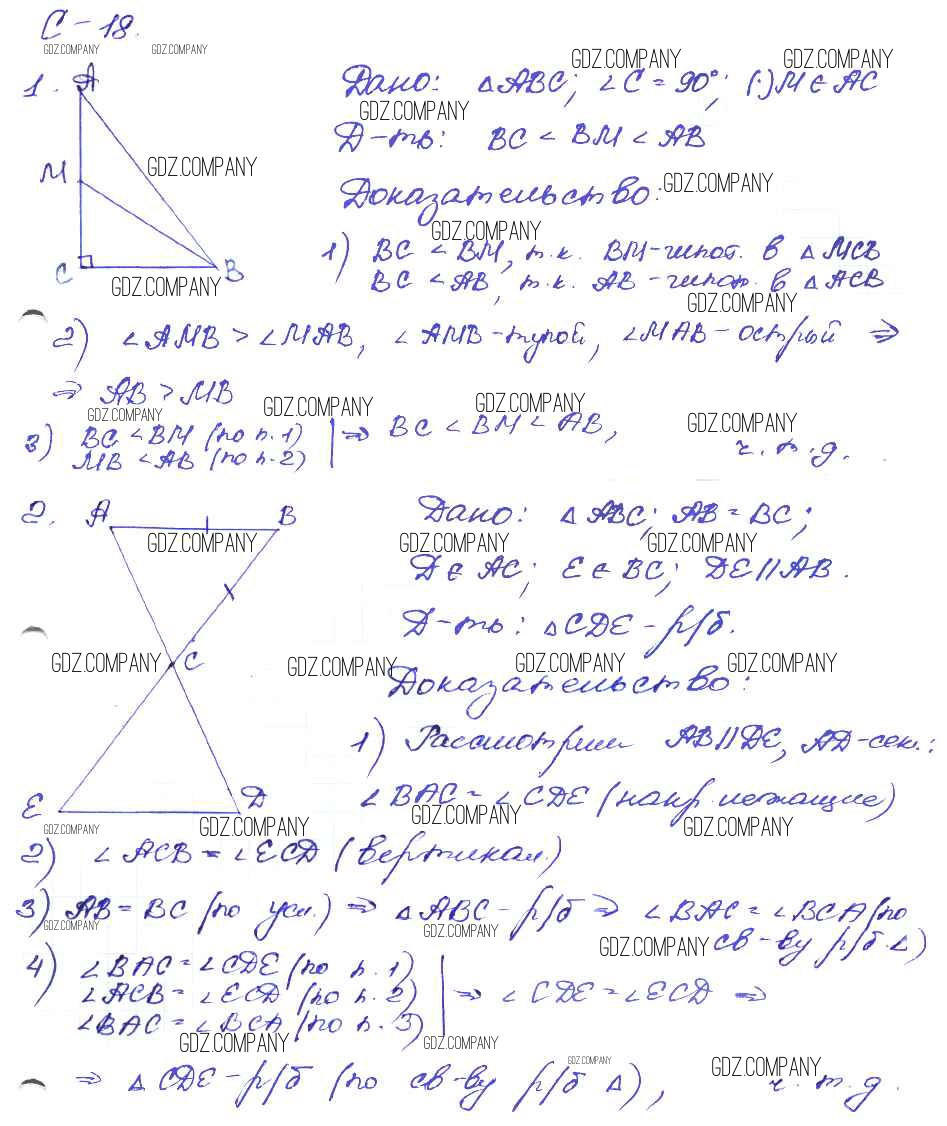 С-18.
GDZ.COMPANY GDZ.COMPANY
1. A
M
C B
Дано: △ABC; ∠C = 90°; (·)M ∈ AC
GDZ.COMPANY GDZ.COMPANY
GDZ.COMPANY
Д-ть: BC < BM < AB
GDZ.COMPANY
Доказательство: GDZ.COMPANY
GDZ.COMPANY
1) BC < BM, т.к. BM-гипот. в △MCB
BC < AB, т.к. AB-гипот. в △ACB
GDZ.COMPANY GDZ.COMPANY
2) ∠AMB > ∠MAB, ∠AMB-тупой, ∠MAB-острый ⇒
⇒ AB > MB
GDZ.COMPANY GDZ.COMPANY GDZ.COMPANY GDZ.COMPANY
3) BC < BM (по п.1) | ⇒ BC < BM < AB,
MB < AB (по п.2) | ч.т.д.
2. A B
C
E D
Дано: △ABC; AB = BC;
GDZ.COMPANY GDZ.COMPANY GDZ.COMPANY
D ∈ AC; E ∈ BC; DE ∥ AB.
Д-ть: △CDE - р/б.
GDZ.COMPANY GDZ.COMPANY GDZ.COMPANY GDZ.COMPANY
Доказательство:
1) Рассмотрим AB ∥ DE, AD-сек.:
∠BAC = ∠CDE (накр. лежащие)
GDZ.COMPANY GDZ.COMPANY GDZ.COMPANY GDZ.COMPANY
2) ∠ACB = ∠ECD (вертикал.)
3) AB = BC (по усл.) ⇒ △ABC - р/б ⇒ ∠BAC = ∠BCA (по
GDZ.COMPANY GDZ.COMPANY GDZ.COMPANY св-ву р/б △)
4) ∠BAC = ∠CDE (по п.1)
∠ACB = ∠ECD (по п.2) | ⇒ ∠CDE = ∠ECD ⇒
∠BAC = ∠BCA (по п.3)
GDZ.COMPANY GDZ.COMPANY
GDZ.COMPANY GDZ.COMPANY
⇒ △CDE - р/б (по св-ву р/б △), ч.т.д.